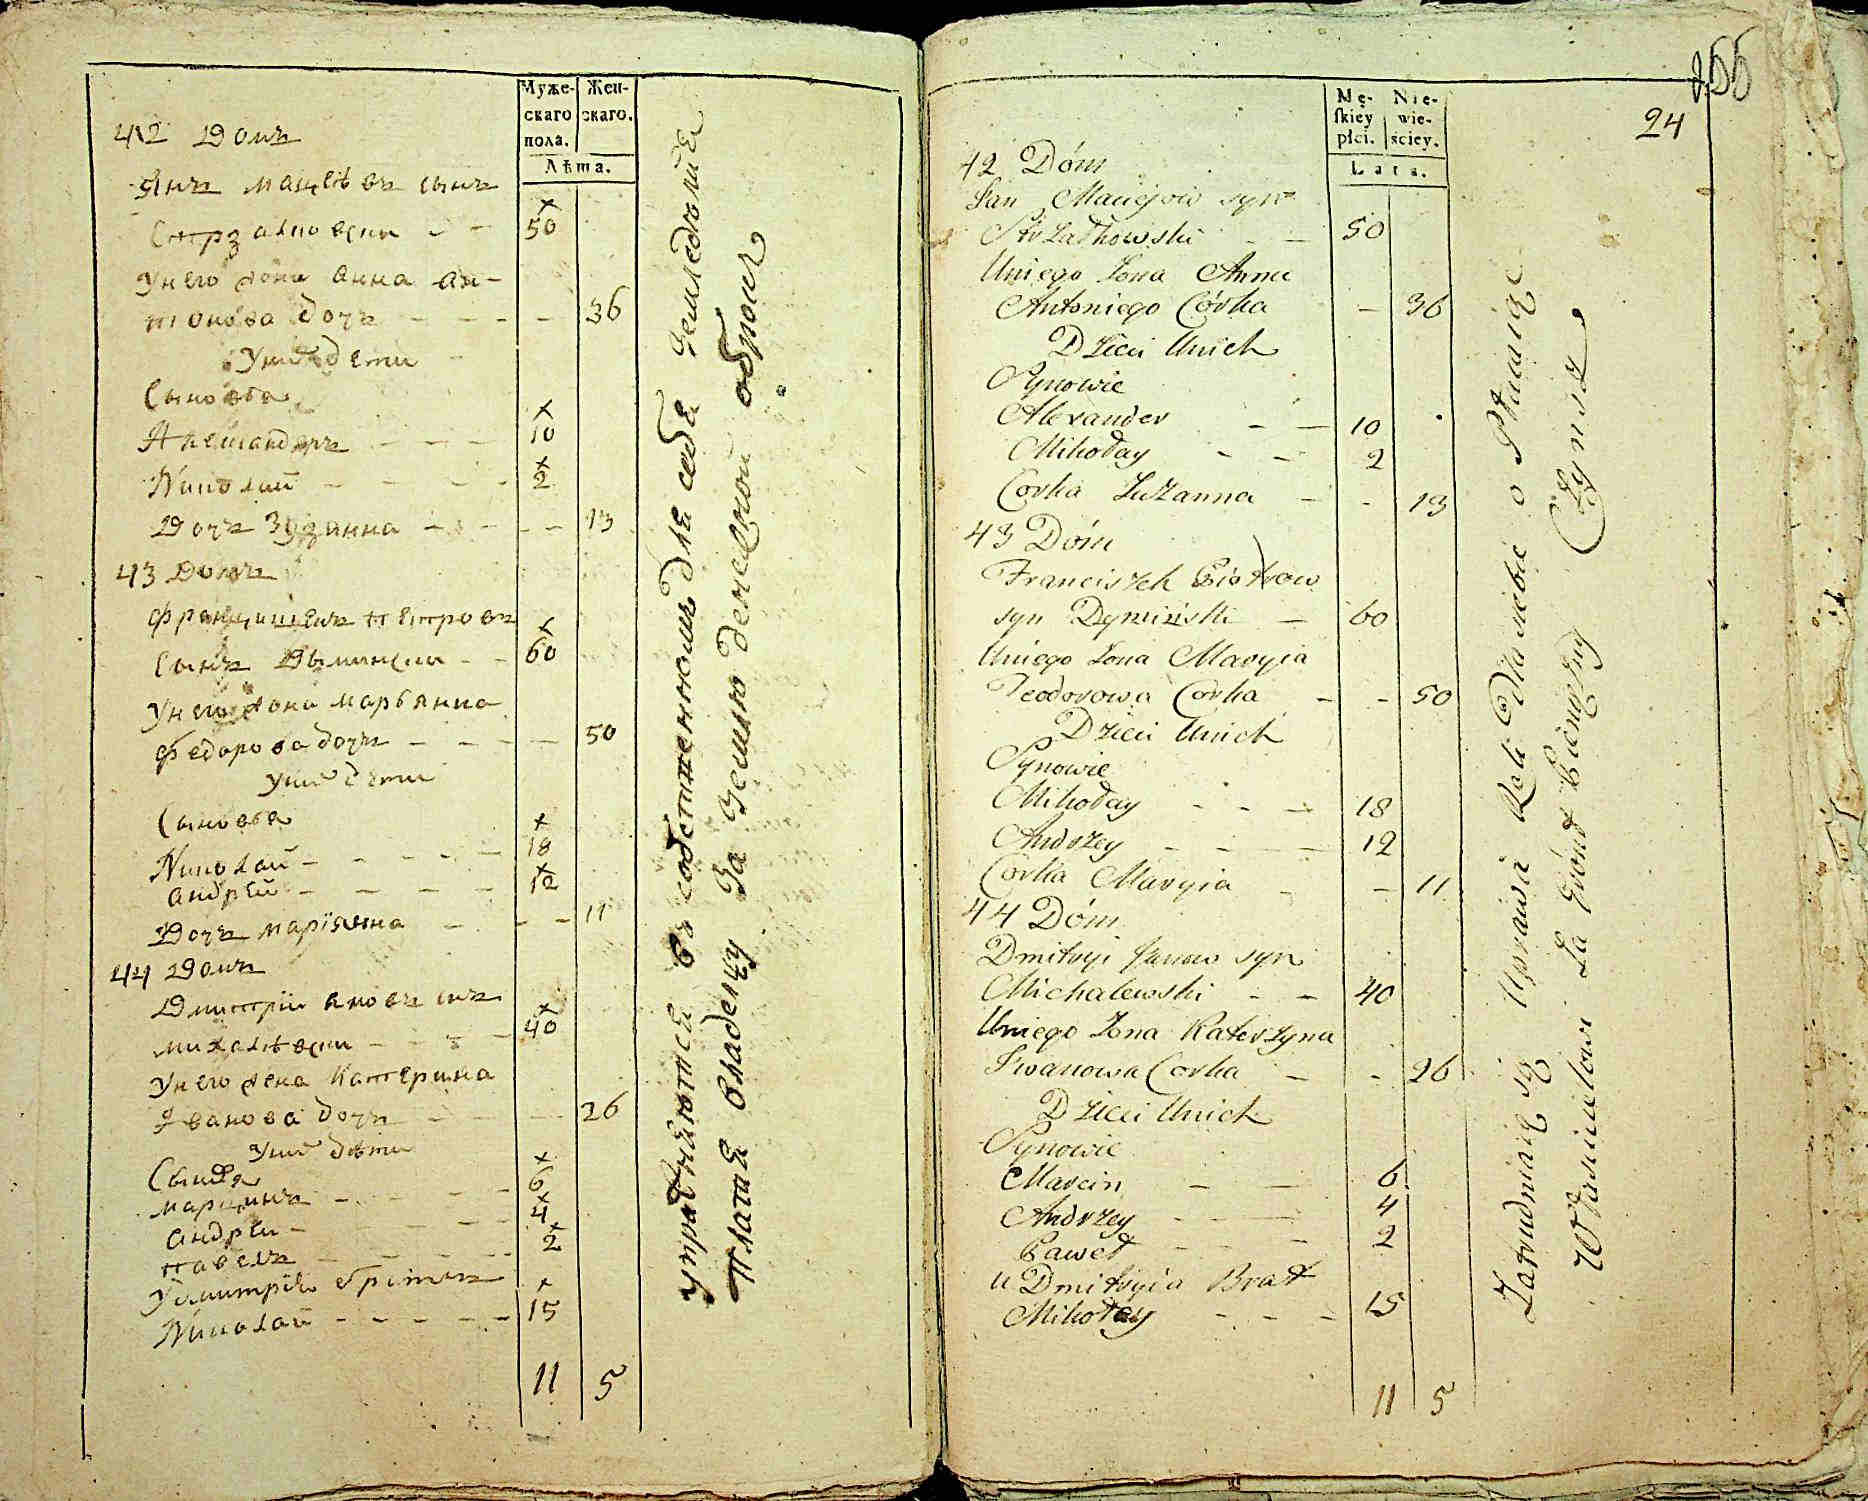 Муже-
скаго
пола.
Жен-
скаго.
Лѣта.
42 Домъ
Янъ мацѣевъ сынъ
Стрзалковски 50
Унего жена анна ан-
тонова дочь 36
Унихъ дети
Сыновья
Александеръ 10
Николай 2
Дочь Зузанна 13
43 Домъ
Францишекъ Петровъ
сынъ Дымински 60
Унего жона марьянна
Федорова дочь 50
Унихъ дети
Сыновья
Николай 18
андрей 12
Дочь маріянна 11
44 Домъ
Дмитрій яновъ сынъ
михалѣвски 40
Унего жена Катерина
Іванова дочь 26
Унихъ дѣти
Сыновья
марцинъ 6
андрѣй 4
павелъ 2
Удмитрія братъ
Николай 15
11 5
упражняются въ собственномъ для себя земледелии
платя владельцу за землю денежной оброкъ
Mę-
skiey
płci.
Nie-
wie-
ściey.
Lata.
255
24
42 Dóm
Jan Maciejow syn
Strzałkowski 50
Uniego Zona Anna
Antoniego Córka 36
Dzieci Unich
Synowie
Alexander 10
Mikołay 2
Corka Zuzanna 13
43 Dóm
Franciszek Piotrow
syn Dymiński 60
Uniego Zona Maryia
Teodorowa Corka 50
Dzieci Unich
Synowie
Mikołay 18
Andrzey 12
Corka Maryia 11
44 Dóm
Dmitryi Janow syn
Michalewski 40
Uniego Zona Katerzyna
Iwanowa Corka 26
Dzieci Unich
Synowie
Marcin 6
Andrzey 4
Paweł 2
u Dmitryia Brat
Mikołay 15
11 5
Zatrudniaią się Uprawą Roli dla siebie o Płacaiąc
Właścicielowi za Grónt Pieniężny Czynsz